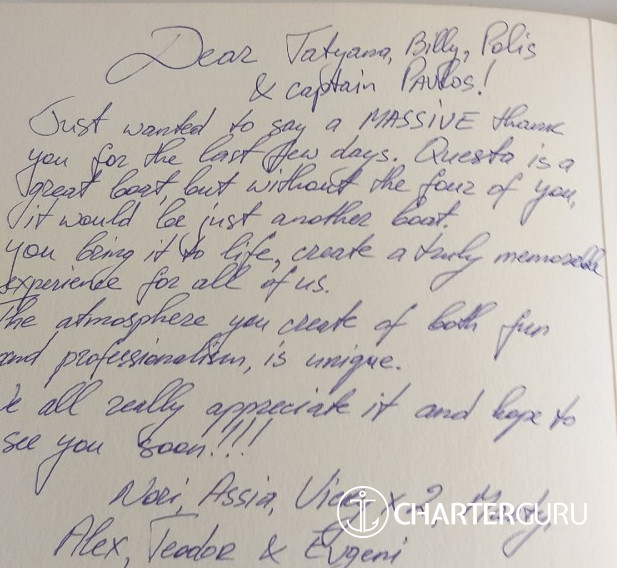 Dear Tatyana, Billy, Polis
& captain PAVLOS!
Just wanted to say a MASSIVE thank
you for the last few days. Questa is a
great boat, but without the four of you,
it would be just another boat.
you bring it to life, create a truly memorable
experience for all of us.
The atmosphere you create of both fun
and professionalism, is unique.
We all really appreciate it and hope to
see you soon!!!!
Nori, Assia, x 2,
Alex, Teodor & Evgeni
CHARTERGURU